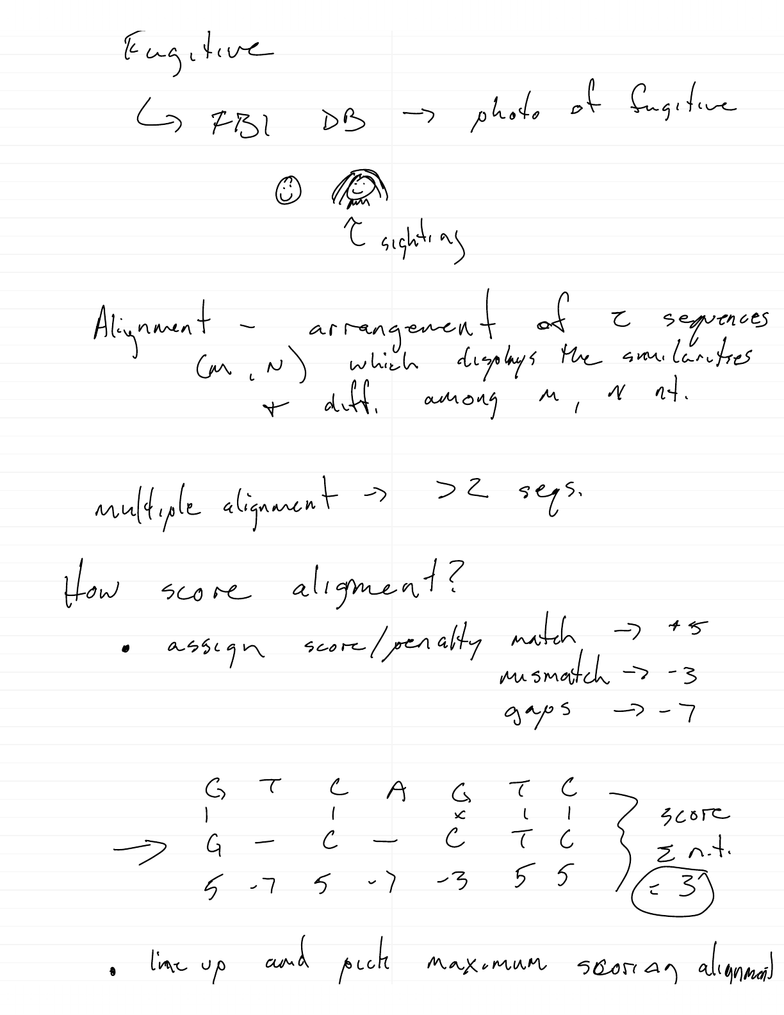 Fugitive
↳ FBI DB → photo of fugitive
↑ sighting
Alignment - arrangement of 2 sequences
(M, N) which displays the similarities
+ diff. among M, N nt.
multiple alignment → >2 seqs.
How score aligment?
• assign score/penalty match → +5
mismatch → -3
gaps → -7
G T C A G T C
| | x | | score
→ G - C - C T C Σ n.t.
5 -7 5 -7 -3 5 5 = 3
• line up and pick maximum scoring alignment